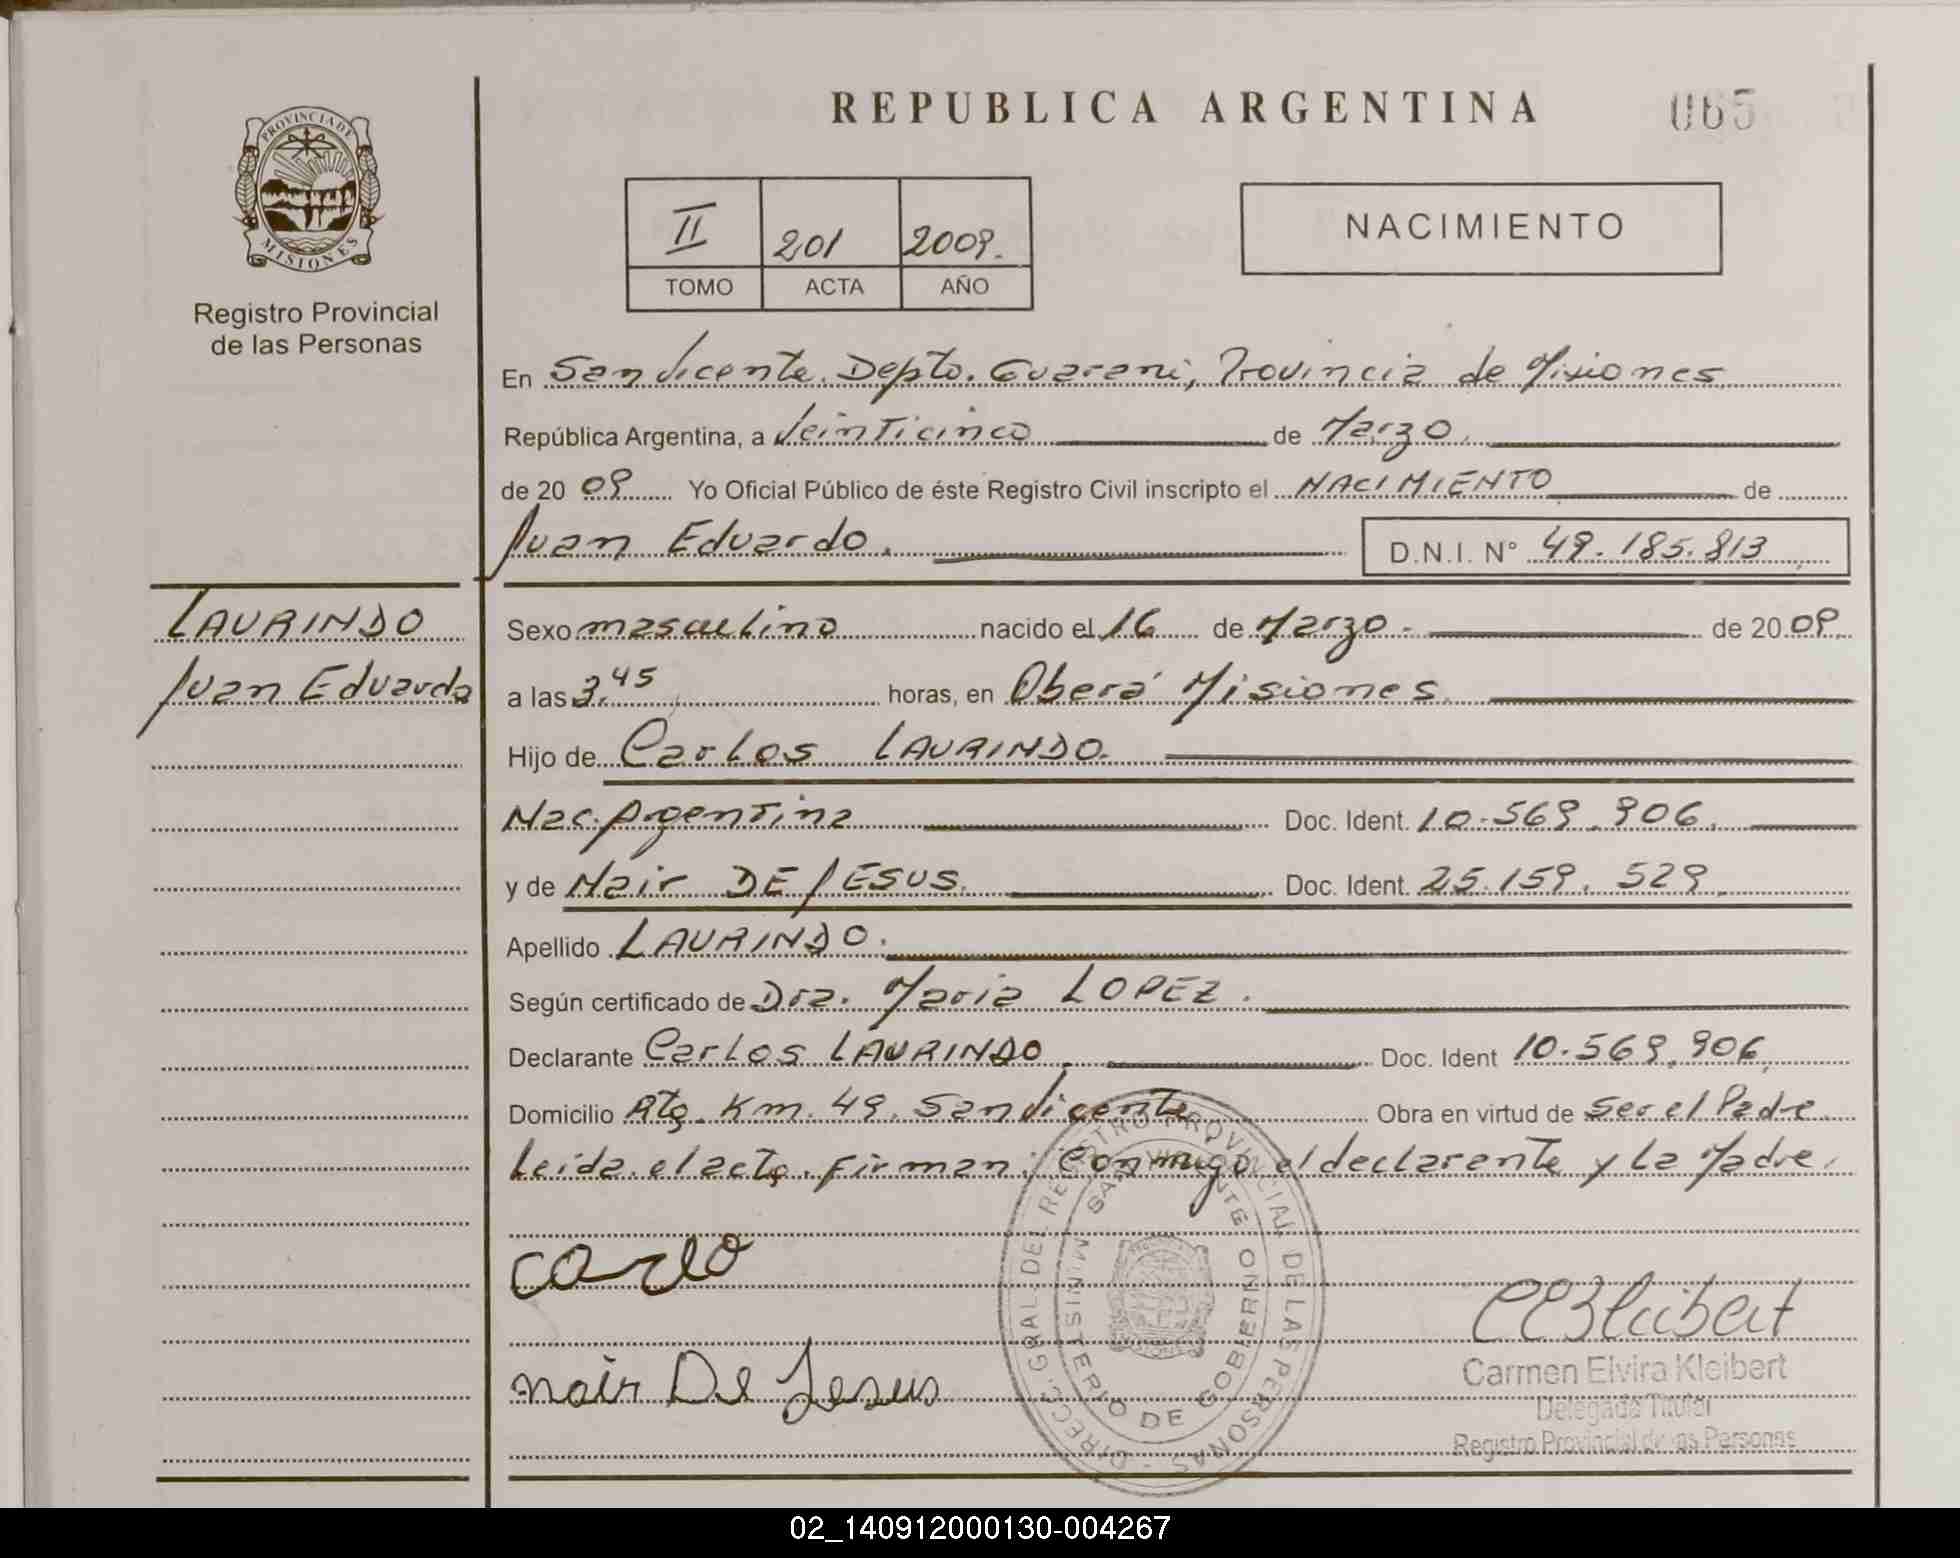 REPUBLICA ARGENTINA
065
PROVINCIA DE
MISIONES
Registro Provincial
de las Personas
II 201 2009.
TOMO ACTA AÑO
NACIMIENTO
En San Vicente. Depto. Guarani, Provincia de Misiones
República Argentina, a Veinticinco de Marzo.
de 20 09 Yo Oficial Público de éste Registro Civil inscripto el NACIMIENTO de
Juan Eduardo.
D.N.I. N° 49.185.813
LAURINDO
Juan Eduardo
Sexo masculino nacido el 16 de Marzo - de 20 09.
a las 3.45 horas, en Oberá Misiones.
Hijo de Carlos LAURINDO.
Nac. Argentina Doc. Ident. 10.569.906.
y de Nair DE JESUS. Doc. Ident. 25.159.529.
Apellido LAURINDO.
Según certificado de Dra. Maria LOPEZ.
Declarante Carlos LAURINDO. Doc. Ident 10.569.906.
Domicilio Rta. Km. 49. San Vicente Obra en virtud de Ser el Padre.
Leída el acta, firman: Conmigo el declarante y la Madre.
carlo
nair De Jesus
DIRECC. GRAL. DEL REGISTRO PROVINCIAL DE LAS PERSONAS
MINISTERIO DE GOBIERNO
SAN VICENTE
CEKleibert
Carmen Elvira Kleibert
Delegada Titular
Registro Provincial de las Personas
02_140912000130-004267